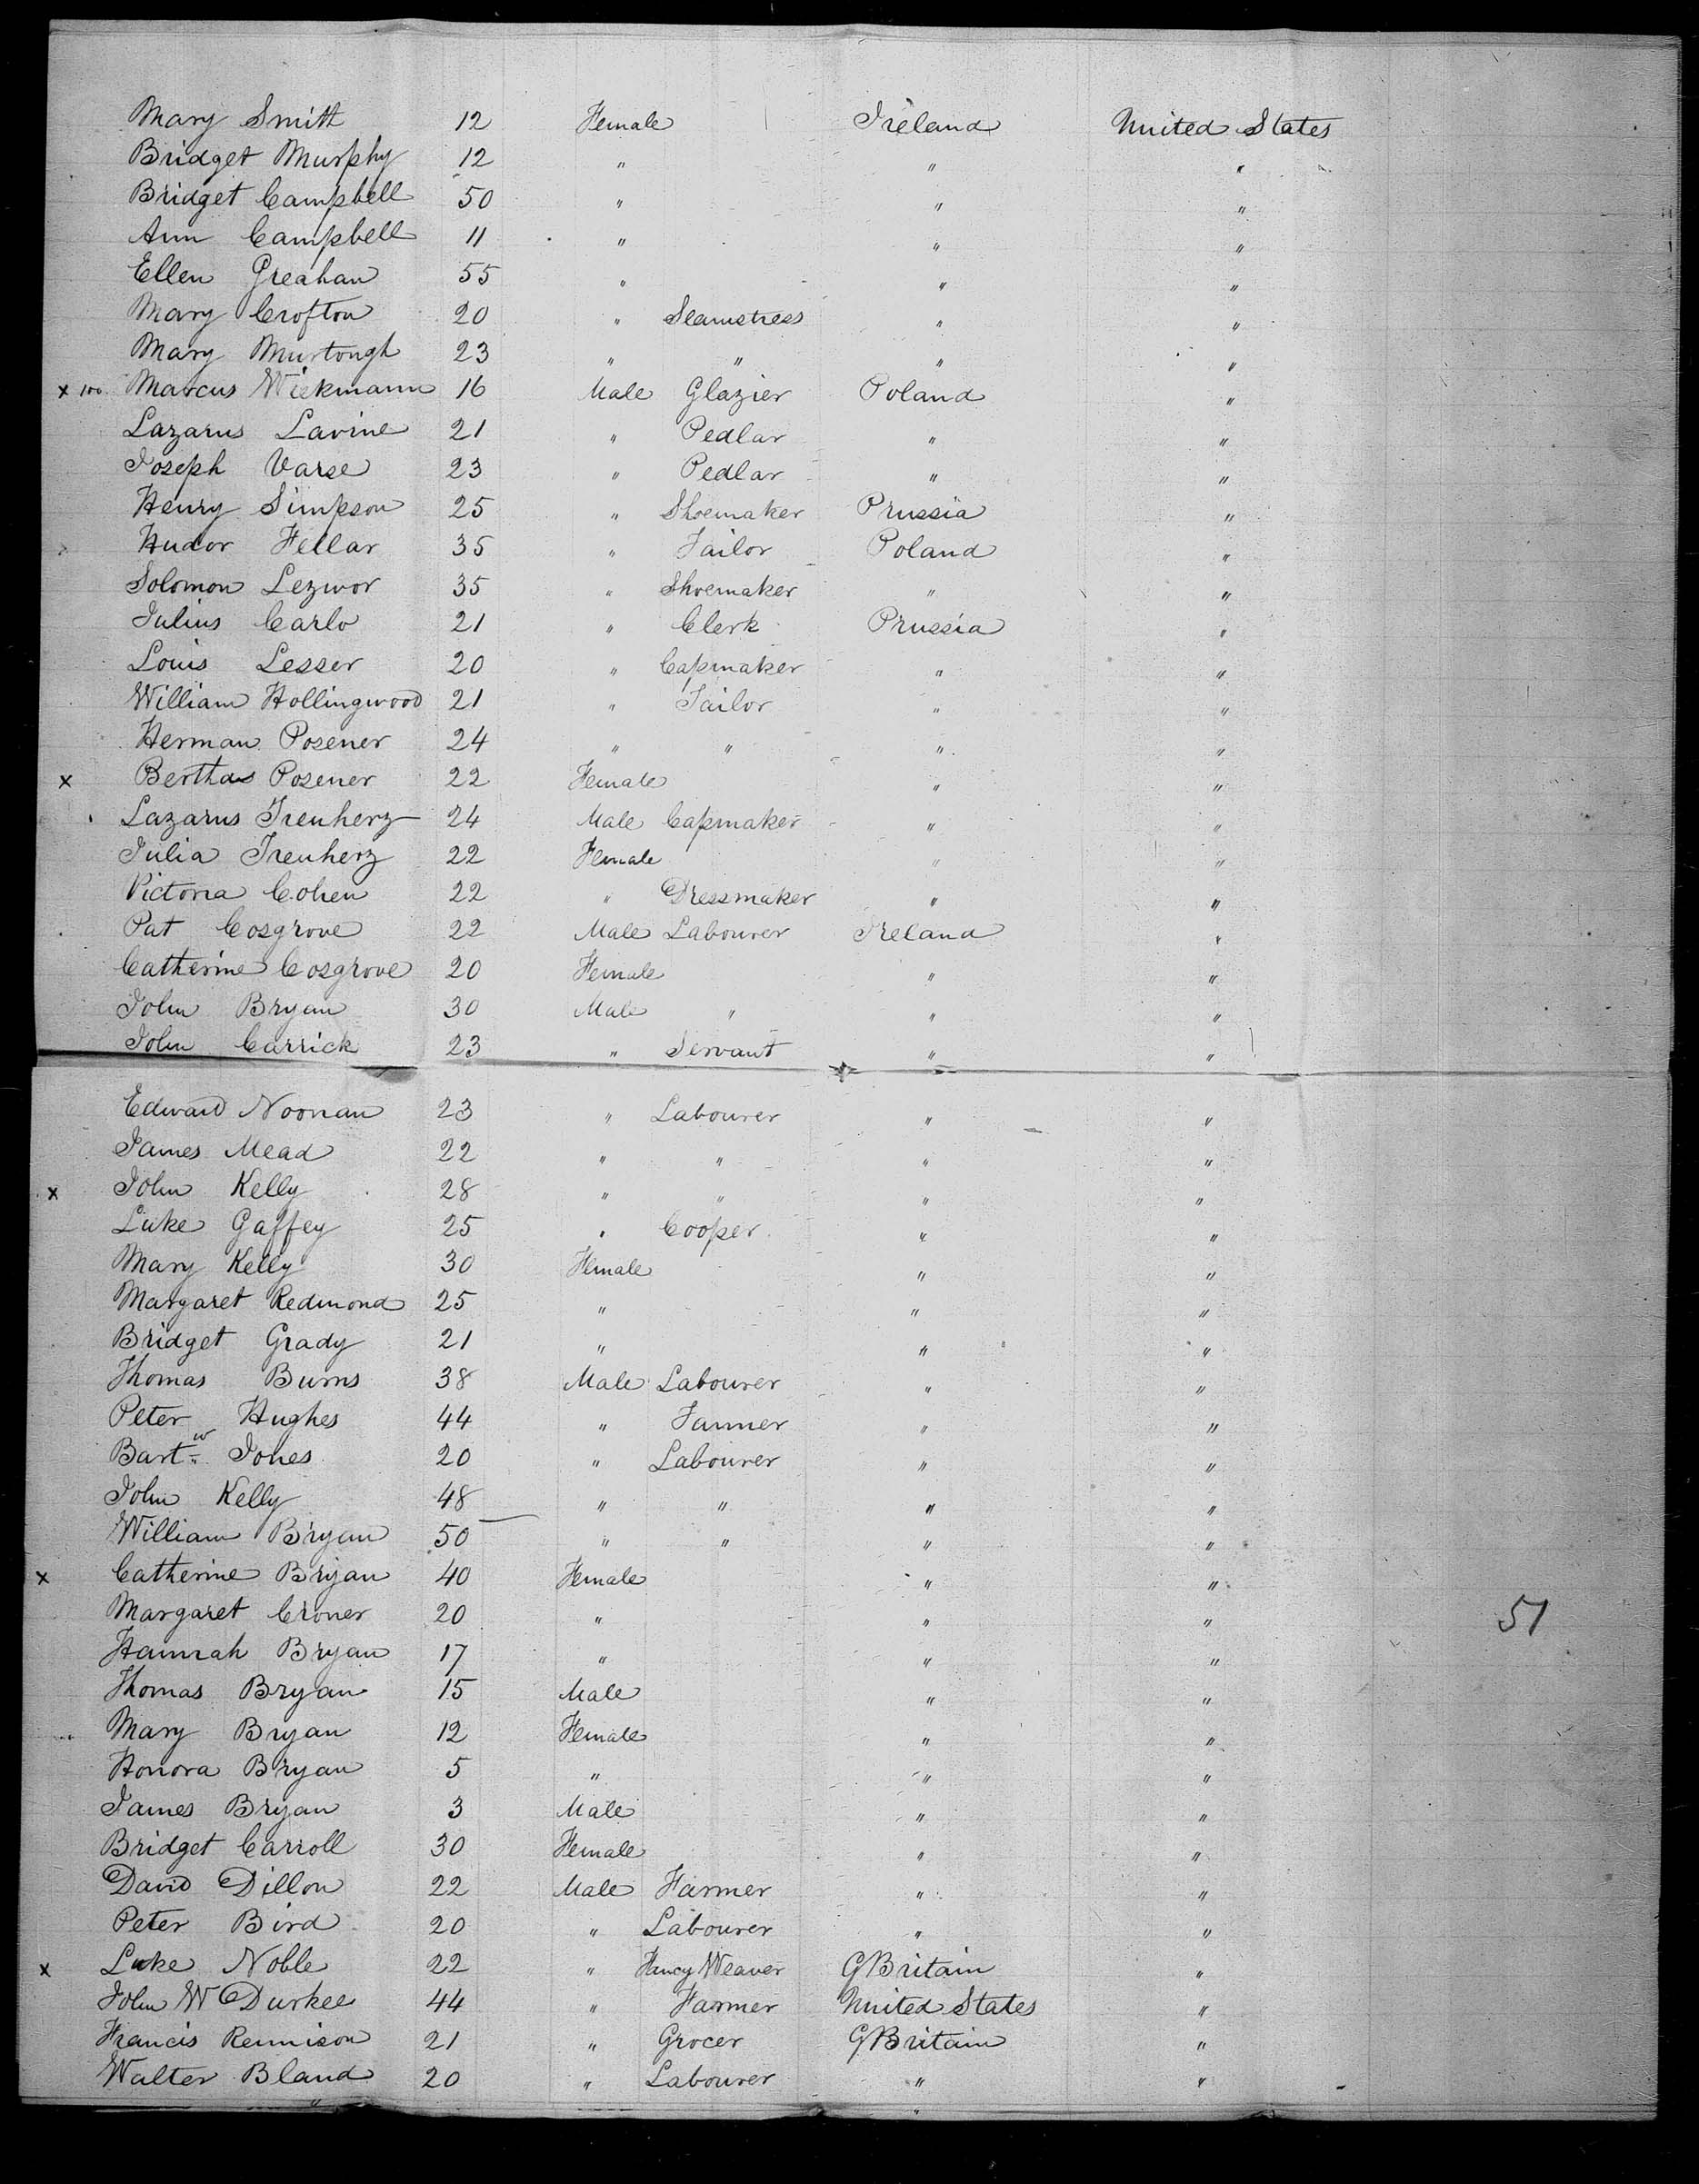 Mary Smith 12 Female Ireland United States
Bridget Murphy 12 " " "
Bridget Campbell 50 " " "
Ann Campbell 11 " " "
Ellen Greahan 55 " " "
Mary Crofton 20 " Seamstress " "
Mary Murtough 23 " " " "
x 100 Marcus Wiekmann 16 Male Glazier Poland "
Lazarus Lavine 21 " Pedlar " "
Joseph Varse 23 " Pedlar " "
Henry Simpson 25 " Shoemaker Prussia "
Hudor Fellar 35 " Tailor Poland "
Solomon Lezwor 35 " Shoemaker " "
Julius Carlo 21 " Clerk Prussia "
Louis Lesser 20 " Capmaker " "
William Hollingwood 21 " Tailor " "
Herman Posener 24 " " " "
x Bertha Posener 22 Female " "
Lazarus Treuherz 24 Male Capmaker " "
Julia Treuherz 22 Female " "
Victoria Cohen 22 " Dressmaker " "
Pat Cosgrove 22 Male Labourer Ireland "
Catherine Cosgrove 20 Female " "
John Bryan 30 Male " " "
John Carrick 23 " Servant " "
Edward Noonan 23 " Labourer " "
James Mead 22 " " " "
x John Kelly 28 " " " "
Luke Gaffey 25 " Cooper " "
Mary Kelly 30 Female " "
Margaret Redmond 25 " " "
Bridget Grady 21 " " "
Thomas Burns 38 Male Labourer " "
Peter Hughes 44 " Farmer " "
Bartw Jones 20 " Labourer " "
John Kelly 48 " " " "
William Bryan 50 " " " "
x Catherine Bryan 40 Female " "
Margaret Croner 20 " " " 51
Hannah Bryan 17 " " "
Thomas Bryan 15 Male " "
Mary Bryan 12 Female " "
Honora Bryan 5 " " "
James Bryan 3 Male " "
Bridget Carroll 30 Female " "
David Dillon 22 Male Farmer " "
Peter Bird 20 " Labourer " "
x Luke Noble 22 " Fancy Weaver GBritain "
John W Durkee 44 " Farmer United States "
Francis Rennison 21 " Grocer GBritain "
Walter Bland 20 " Labourer " "